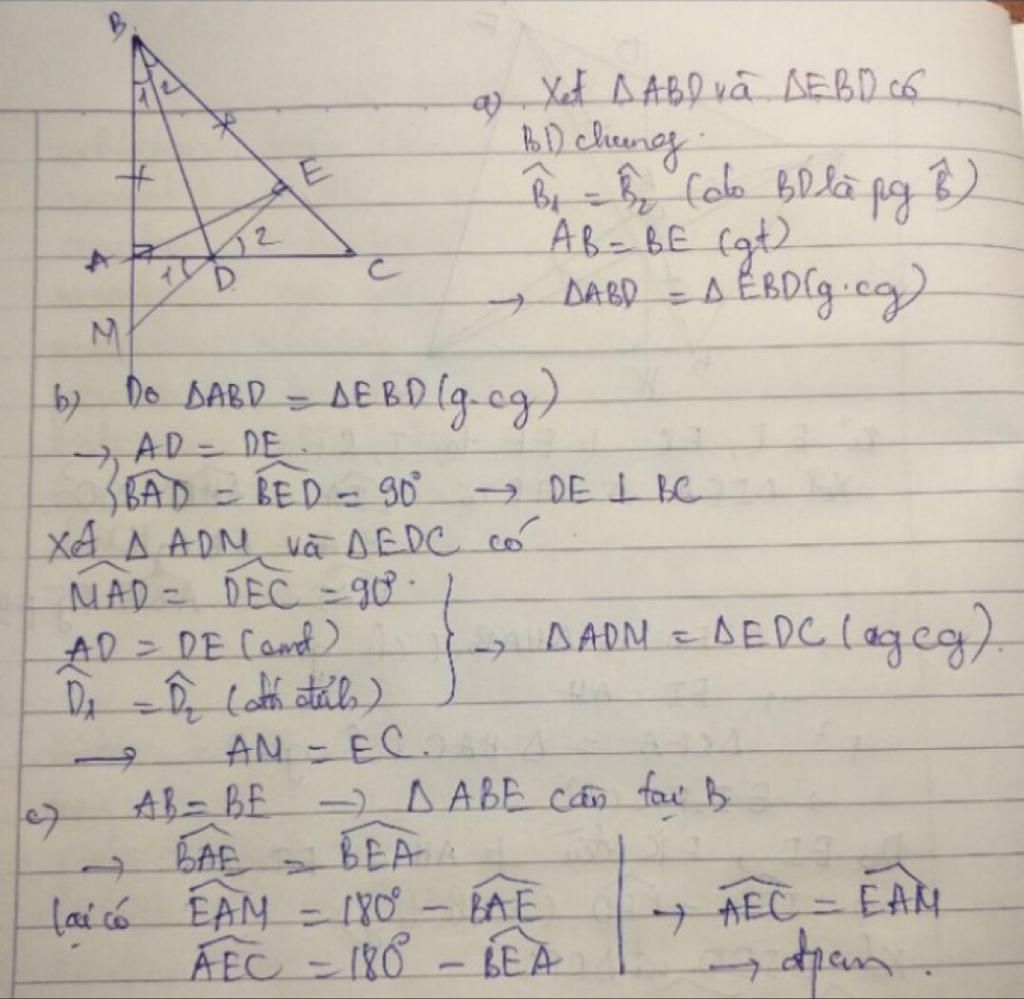 B
1 2
E
A
1 D 2
C
M
a) Xét ΔABD và ΔEBD có
BD chung.
B̂₁ = B̂₂ (do BD là pg B̂)
AB = BE (gt)
→ ΔABD = ΔEBD (g.cg)
b) Do ΔABD = ΔEBD (g.cg)
→ AD = DE.
BAD = BED = 90° → DE ⊥ BC
Xét Δ ADM và ΔEDC có
MAD = DEC = 90°.
AD = DE (cmt)
D̂₁ = D̂₂ (đối đỉnh)
→ ΔADM = ΔEDC (gcg).
→ AM = EC.
c) AB = BE → Δ ABE cân tại B
→ BAE = BEA
lại có EAM = 180° - BAE
AEC = 180° - BEA
→ AEC = EAM
→ đpcm.